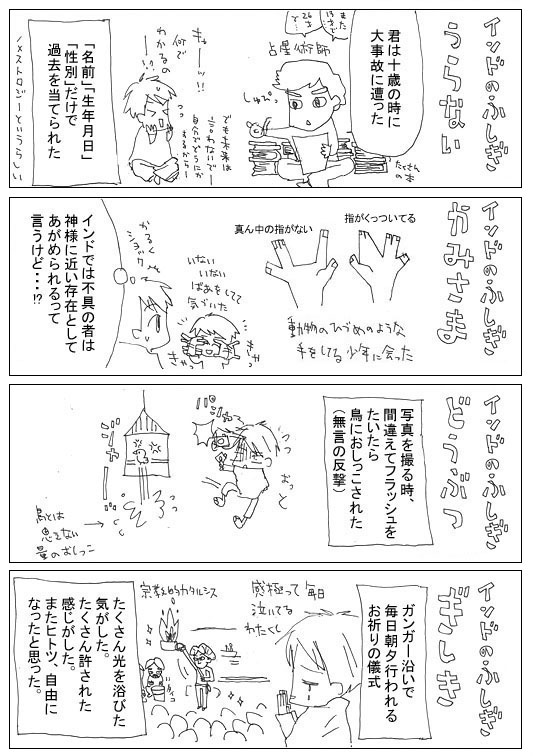 インドのふしぎ
うらない
君は十歳の時に
大事故に遭った
また
13才で
26才
と…
占星術師
しゅぴっ
たくさん
の本
きゃーッ!!
何で
わかるの
ーッ!!
でも未来は
言わないでー
自分でどうにか
するから〜
「名前」「生年月日」
「性別」だけで
過去を当てられた
インドのふしぎ
かみさま
指がくっついてる
真ん中の指がない
動物のひづめのような
手をしてる少年に会った
いない
いない
ばあをしてて
気づいた
きゃっ
きゃっ
かるく
ショック
インドでは不具の者は
神様に近い存在として
あがめられるって
言うけど・・・!?
インドのふしぎ
どうぶつ
写真を撮る時、
間違えてフラッシュを
たいたら
鳥におしっこされた
(無言の反撃)
おっと
ジャー
鳥とは
思えない
量のおしっこ
インドのふしぎ
ぎしき
ガンガー沿いで
毎日朝夕行われる
お祈りの儀式
感極って毎日
泣いてる
わたくし
宗教的カタルシス
たくさん光を浴びた
気がした。
たくさん許された
感じがした。
またヒトツ、自由に
なったと思った。